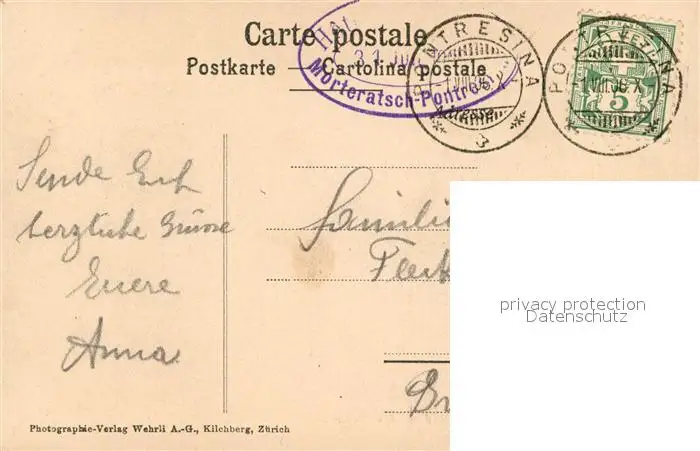 Carte postale
Postkarte — Cartolina postale
31 JUL
Morteratsch-Pontresina
PONTRESINA
Adresse
PONTRESINA
HELVETIA
5
Sende Euch
herzliche Grüsse
Euere
Anna
Familie
privacy protection
Datenschutz
Photographie-Verlag Wehrli A.-G., Kilchberg, Zürich